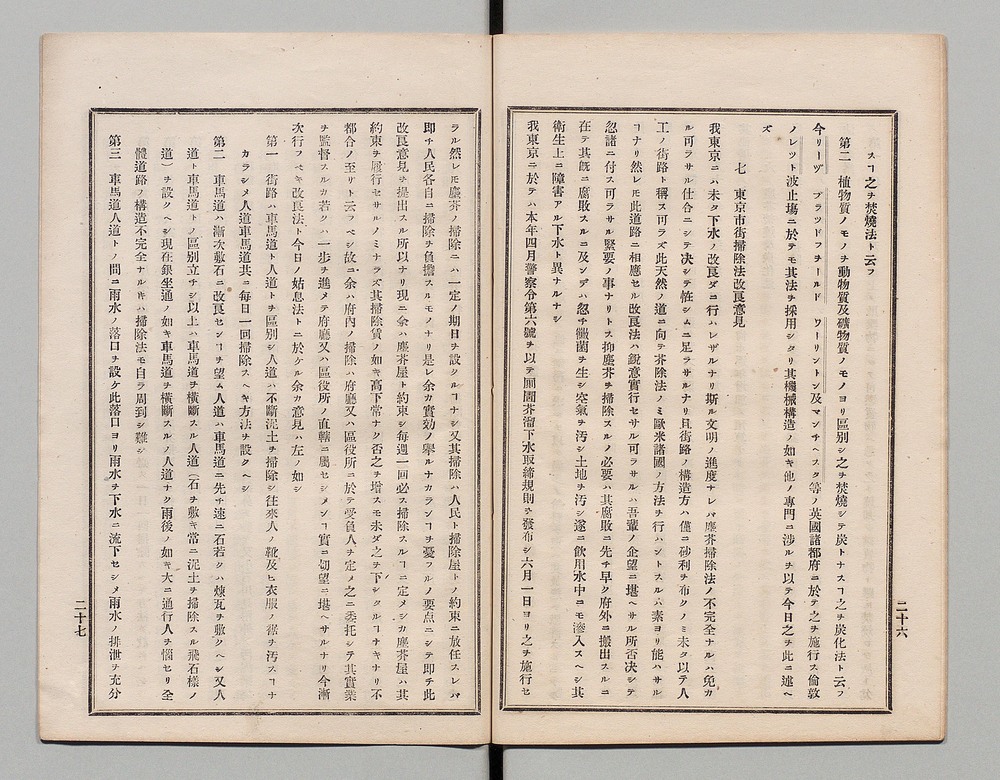 スヿ之ヲ焚燒法ト云フ
第二 植物質ノモノヲ動物質及礦物質ノモノヨリ區別シ之ヲ焚燒シテ炭トナスヿ之ヲ炭化法ト云フ
今リーヅ ブラツドフヲールド ワーリントン及マンチヘスタ等ノ英國諸都府ニ於テ之ヲ施行ス倫敦
ノレツト波止塲ニ於テモ其法ヲ採用シタリ其機械構造ノ如キ他ノ專門ニ渉ルヲ以テ今日之ヲ此ニ述ヘ
ズ
七 東京市街掃除法改良意見
我東京ニハ未タ下水ノ改良ダニ行ハレザルナリ斯ル文明ノ進度ナレバ塵芥掃除法ノ不完全ナルハ免カ
ル可ラサル仕合ニシテ决シテ恠シムニ足ラサルナリ且街路ノ構造方ハ僅ニ砂利ヲ布クノミ未タ以テ人
工ノ街路ト稱ス可ラズ此天然ノ道ニ向テ芥除法ノミ歐米諸國ノ方法ヲ行ハントスルハ素ヨリ能ハサル
ヿナリ然レ𪜈此道路ニ相應セル改良法ハ鋭意實行セサル可ラサルハ吾輩ノ企望ニ堪ヘサル所否决シテ
忽諸ニ付ス可ラサル緊要ノ事ナリトス抑塵芥ヲ掃除スルノ必要ハ其腐敗ニ先チ早ク府外ニ搬出スルニ
在テ其既ニ腐敗スルニ及ンデハ忽チ黴菌ヲ生シ空氣ヲ汚シ土地ヲ汚シ遂ニ飲用水中ニモ滲入スヘシ其
衛生上ニ障害アル下水ト異ナルナシ
我東京ニ於テハ本年四月警察令第六號ヲ以テ厠圊芥溜下水取締規則ヲ發布シ六月一日ヨリ之ヲ施行セ
二十六
ラル然レ𪜈塵芥ノ掃除ニハ一定ノ期日ヲ設クルヿナシ又其掃除ハ人民ト掃除屋トノ約束ニ放任スレバ
即チ人民各自ニ掃除ヲ負擔スルモノナリ是レ余カ實効ノ擧ルナカランヿヲ憂フルノ要点ニシテ即チ此
改良意見ヲ提出スル所以ナリ現ニ余ハ塵芥屋ト約束シ毎週一回必ス掃除スルヿニ定メシカ塵芥屋ハ其
約束ヲ履行セサルノミナラズ其掃除賃ノ如キ高下常ナク否之ヲ増スモ未ダ之ヲ下シタルヿナキナリ不
都合ノ至リト云フベシ故ニ余ハ府内ノ掃除ハ府廳又ハ區役所ニ於テ受負人ヲ定メ之ニ委托シテ其實業
ヲ監督スルカ若クハ一歩ヲ進メテ府廳又ハ區役所ノ直轄ニ屬セシメンヿ實ニ切望ニ堪ヘサルナリ今漸
次行フベキ改良法ト今日ノ姑息法トニ於ケル余カ意見ハ左ノ如シ
第一 街路ハ車馬道ト人道トヲ區別シ人道ハ不斷泥土ヲ掃除シ往來人ノ靴及ヒ衣服ノ裾ヲ汚スヿナ
カラシメ人道車馬道共ニ毎日一回掃除スヘキ方法ヲ設クヘシ
第二 車馬道ハ漸次敷石ニ改良センヿヲ望ム人道ハ車馬道ニ先チ速ニ石若クハ煉瓦ヲ敷クヘシ又人
道ト車馬道トノ區別立チシ以上ハ車馬道ヲ横斷スル人道ニ石ヲ敷キ常ニ泥土ヲ掃除スル飛石樣ノ
道ヲ設クヘシ現在銀坐通ノ如キ車馬道ヲ横斷スルノ人道ナク雨後ノ如キ大ニ通行人ヲ惱セリ全
體道路ノ構造不完全ナルキハ掃除法モ自ラ周到シ難シ
第三 車馬道人道トノ間ニ雨水ノ落口ヲ設ケ此落口ヨリ雨水ヲ下水ニ流下セシメ雨水ノ排泄ヲ充分
二十七